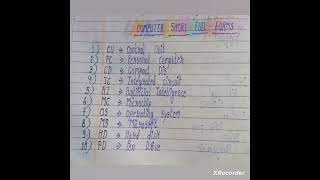 COMPUTER SHORT FULL FORMS
1) CU → Control Unit
2) PC → Personal Computer
3) CD → Compact Dis
4) IC → Integrated Circuit
5) AI → Artificial Intelligence
6) MC →
7) OS → Operating System
8) MB → Microsoft
9) HD → Hard disk
10) PD → Pen Drive
XRecorder